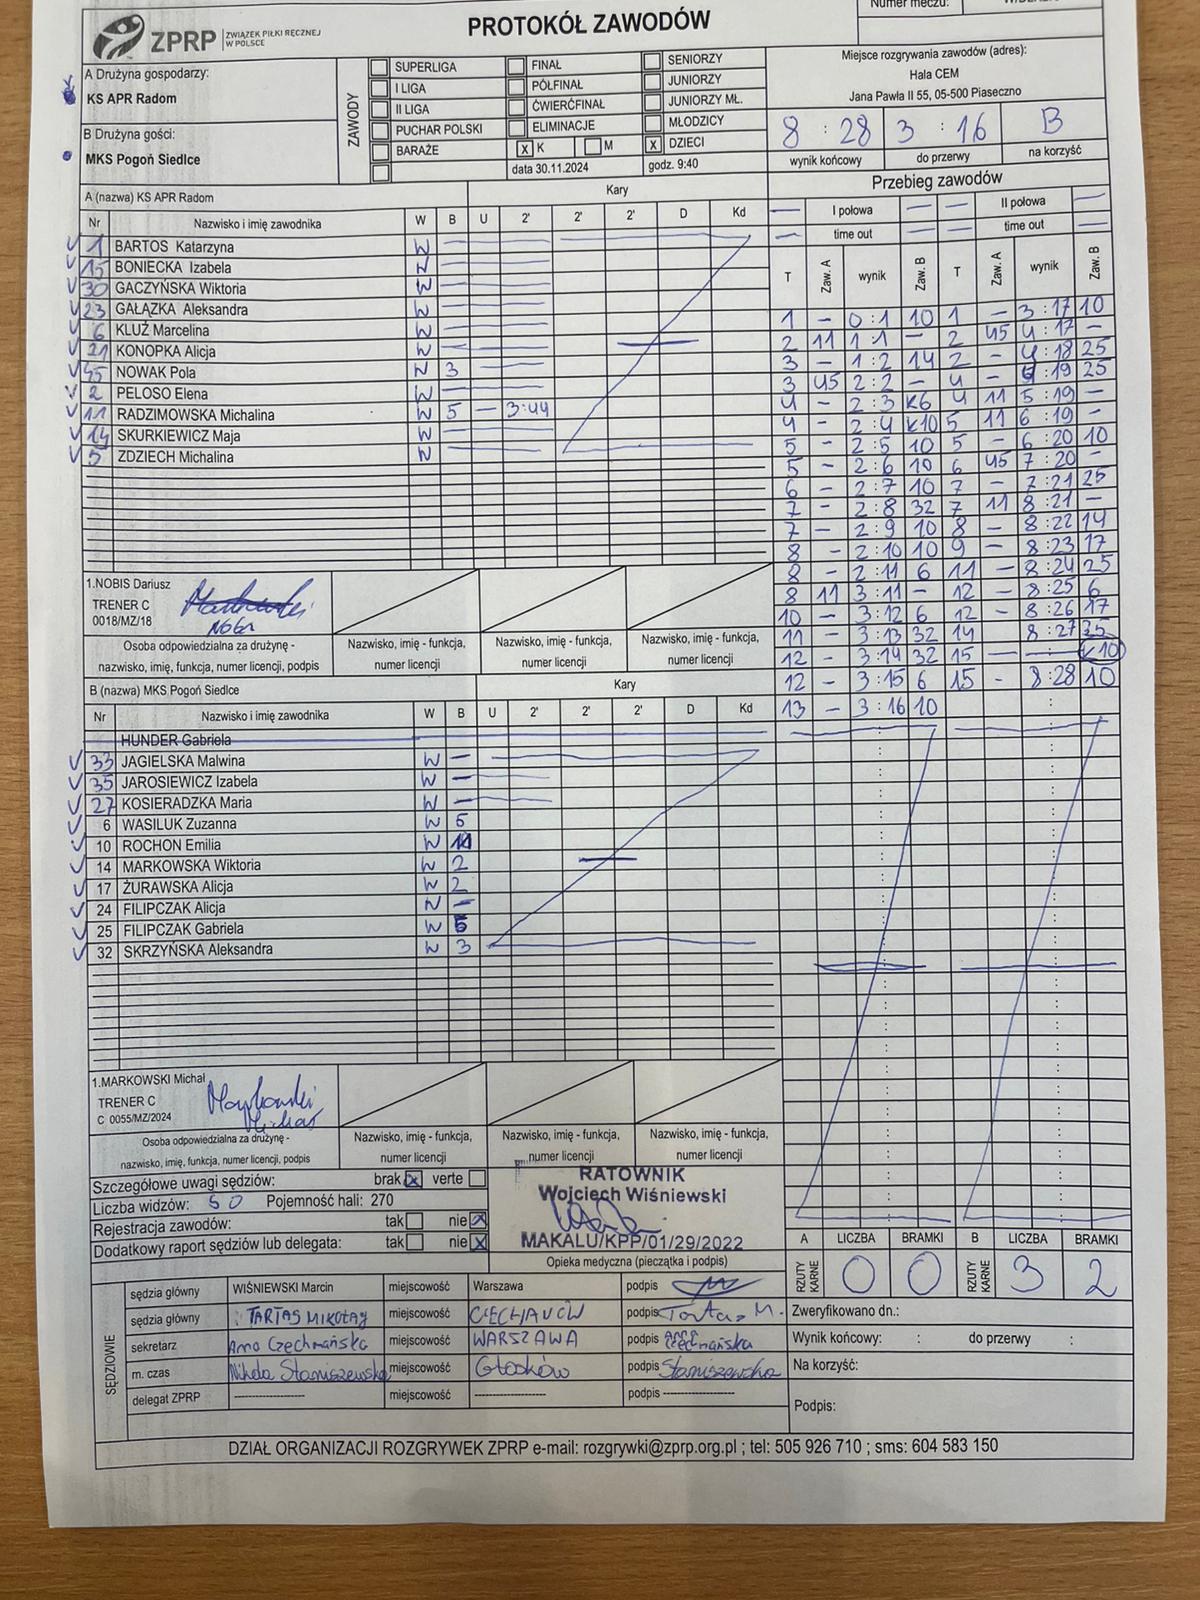 Numer meczu:
ZPRP ZWIĄZEK PIŁKI RĘCZNEJ W POLSCE
PROTOKÓŁ ZAWODÓW
A Drużyna gospodarzy:
KS APR Radom
B Drużyna gości:
MKS Pogoń Siedlce
ZAWODY
SUPERLIGA FINAŁ SENIORZY
I LIGA PÓŁFINAŁ JUNIORZY
II LIGA ĆWIERĆFINAŁ JUNIORZY MŁ.
PUCHAR POLSKI ELIMINACJE MŁODZICY
BARAŻE X K M X DZIECI
data 30.11.2024 godz. 9:40
Miejsce rozgrywania zawodów (adres):
Hala CEM
Jana Pawła II 55, 05-500 Piaseczno
8 : 28 3 : 16 B
wynik końcowy do przerwy na korzyść
A (nazwa) KS APR Radom Kary
Nr Nazwisko i imię zawodnika W B U 2' 2' 2' D Kd
1 BARTOS Katarzyna W
15 BONIECKA Izabela W
30 GACZYŃSKA Wiktoria W
23 GAŁĄZKA Aleksandra W
6 KLUŹ Marcelina W
21 KONOPKA Alicja W —
45 NOWAK Pola W 3
2 PELOSO Elena W
11 RADZIMOWSKA Michalina W 5 — 3:44
14 SKURKIEWICZ Maja W
5 ZDZIECH Michalina W
1.NOBIS Dariusz
TRENER C
0018/MZ/18
Osoba odpowiedzialna za drużynę -
nazwisko, imię, funkcja, numer licencji, podpis
Nazwisko, imię - funkcja, numer licencji
Nazwisko, imię - funkcja, numer licencji
Nazwisko, imię - funkcja, numer licencji
B (nazwa) MKS Pogoń Siedlce Kary
Nr Nazwisko i imię zawodnika W B U 2' 2' 2' D Kd
HUNDER Gabriela
33 JAGIELSKA Malwina W —
35 JAROSIEWICZ Izabela W —
27 KOSIERADZKA Maria W —
6 WASILUK Zuzanna W 5
10 ROCHON Emilia W
14 MARKOWSKA Wiktoria W 2
17 ŻURAWSKA Alicja W 2
24 FILIPCZAK Alicja W —
25 FILIPCZAK Gabriela W
32 SKRZYŃSKA Aleksandra W 3
1.MARKOWSKI Michał
TRENER C
C 0055/MZ/2024
Markowski
Michał
Osoba odpowiedzialna za drużynę -
nazwisko, imię, funkcja, numer licencji, podpis
Nazwisko, imię - funkcja, numer licencji
Nazwisko, imię - funkcja, numer licencji
Nazwisko, imię - funkcja, numer licencji
Przebieg zawodów
I połowa II połowa
time out time out
T Zaw. A wynik Zaw. B T Zaw. A wynik Zaw. B
1 — 0:1 10 1 — 3:17 10
2 11 1:1 — 2 45 4:17 —
3 — 1:2 14 2 — 4:18 25
3 45 2:2 — 4 — 4:19 25
4 — 2:3 K6 4 11 5:19 —
4 — 2:4 K10 5 11 6:19 —
5 — 2:5 10 5 — 6:20 10
5 — 2:6 10 6 45 7:20 —
6 — 2:7 10 7 — 7:21 25
7 — 2:8 32 7 11 8:21 —
7 — 2:9 10 8 — 8:22 14
8 — 2:10 10 9 — 8:23 17
8 — 2:11 6 11 — 8:24 25
8 11 3:11 — 12 — 8:25 6
10 — 3:12 6 12 — 8:26 17
11 — 3:13 32 14 8:27 25
12 — 3:14 32 15 — K10
12 — 3:15 6 15 - 8:28 10
13 — 3:16 10
Szczegółowe uwagi sędziów: brak X verte
Liczba widzów: 50 Pojemność hali: 270
Rejestracja zawodów: tak nie X
Dodatkowy raport sędziów lub delegata: tak nie X
RATOWNIK
Wojciech Wiśniewski
MAKALU/KPP/01/29/2022
Opieka medyczna (pieczątka i podpis)
A LICZBA BRAMKI B LICZBA BRAMKI
RZUTY KARNE 0 0 RZUTY KARNE 3 2
SĘDZIOWIE
sędzia główny WIŚNIEWSKI Marcin miejscowość Warszawa podpis
sędzia główny TARTAS MIKOŁAJ miejscowość CIECHANÓW podpis Tartas M.
sekretarz Anna Czechmańska miejscowość WARSZAWA podpis Anna Czechmańska
m. czas Nikola Staniszewska miejscowość Głosków podpis Staniszewska
delegat ZPRP ---------- miejscowość ---------- podpis ----------
Zweryfikowano dn.:
Wynik końcowy: : do przerwy :
Na korzyść:
Podpis:
DZIAŁ ORGANIZACJI ROZGRYWEK ZPRP e-mail: rozgrywki@zprp.org.pl ; tel: 505 926 710 ; sms: 604 583 150